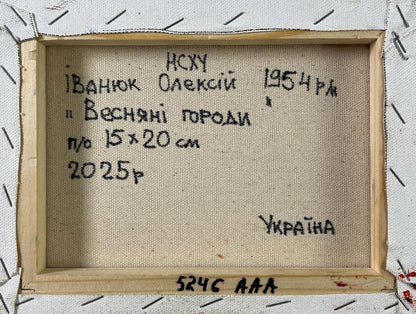 НСХУ
Іванюк Олексій 1954 р/н
"Весняні городи"
п/о 15×20 см
2025р
Україна
5246 ААА